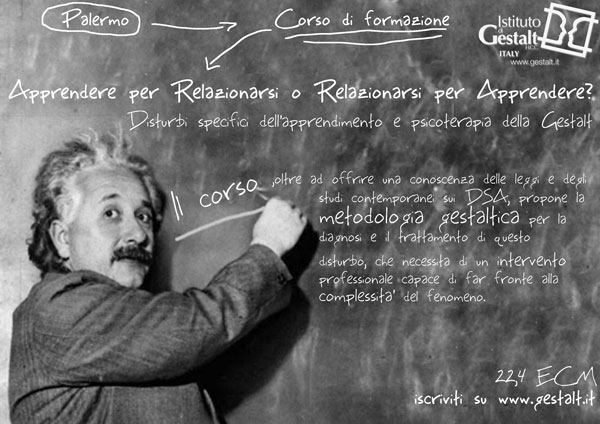 Palermo
Corso di formazione
Istituto
di
Gestalt
H.C.C.
ITALY
www.gestalt.it
Apprendere per Relazionarsi o Relazionarsi per Apprendere?
Disturbi specifici dell'apprendimento e psicoterapia della Gestalt
Il corso ,oltre ad offrire una conoscenza delle leggi e degli
studi contemporanei sui DSA, propone la
metodologia gestaltica per la
diagnosi e il trattamento di questo
disturbo, che necessita di un intervento
professionale capace di far fronte alla
complessita' del fenomeno.
22,4 ECM
iscriviti su www.gestalt.it